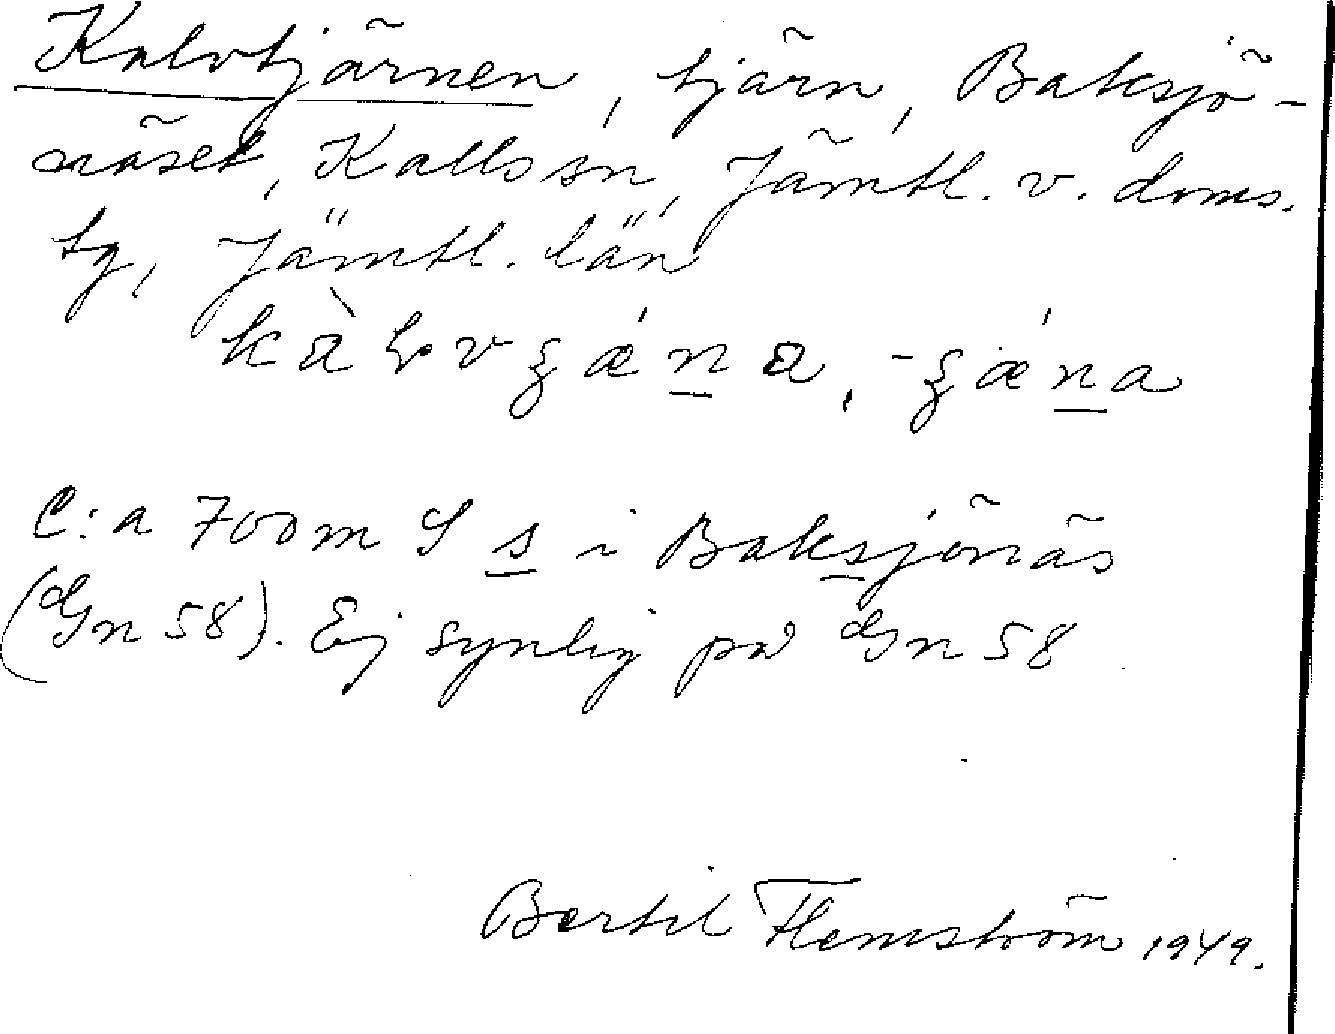 Kalvtjärnen, tjärn, Baksjö-
näset, Kalls sn, Jämtl. v. doms.
tg, Jämtl. län

C:a 700 m S s i Baksjönäs
(Gn 58). Ej synlig på Gn 58
Bertil Flemström 1949.